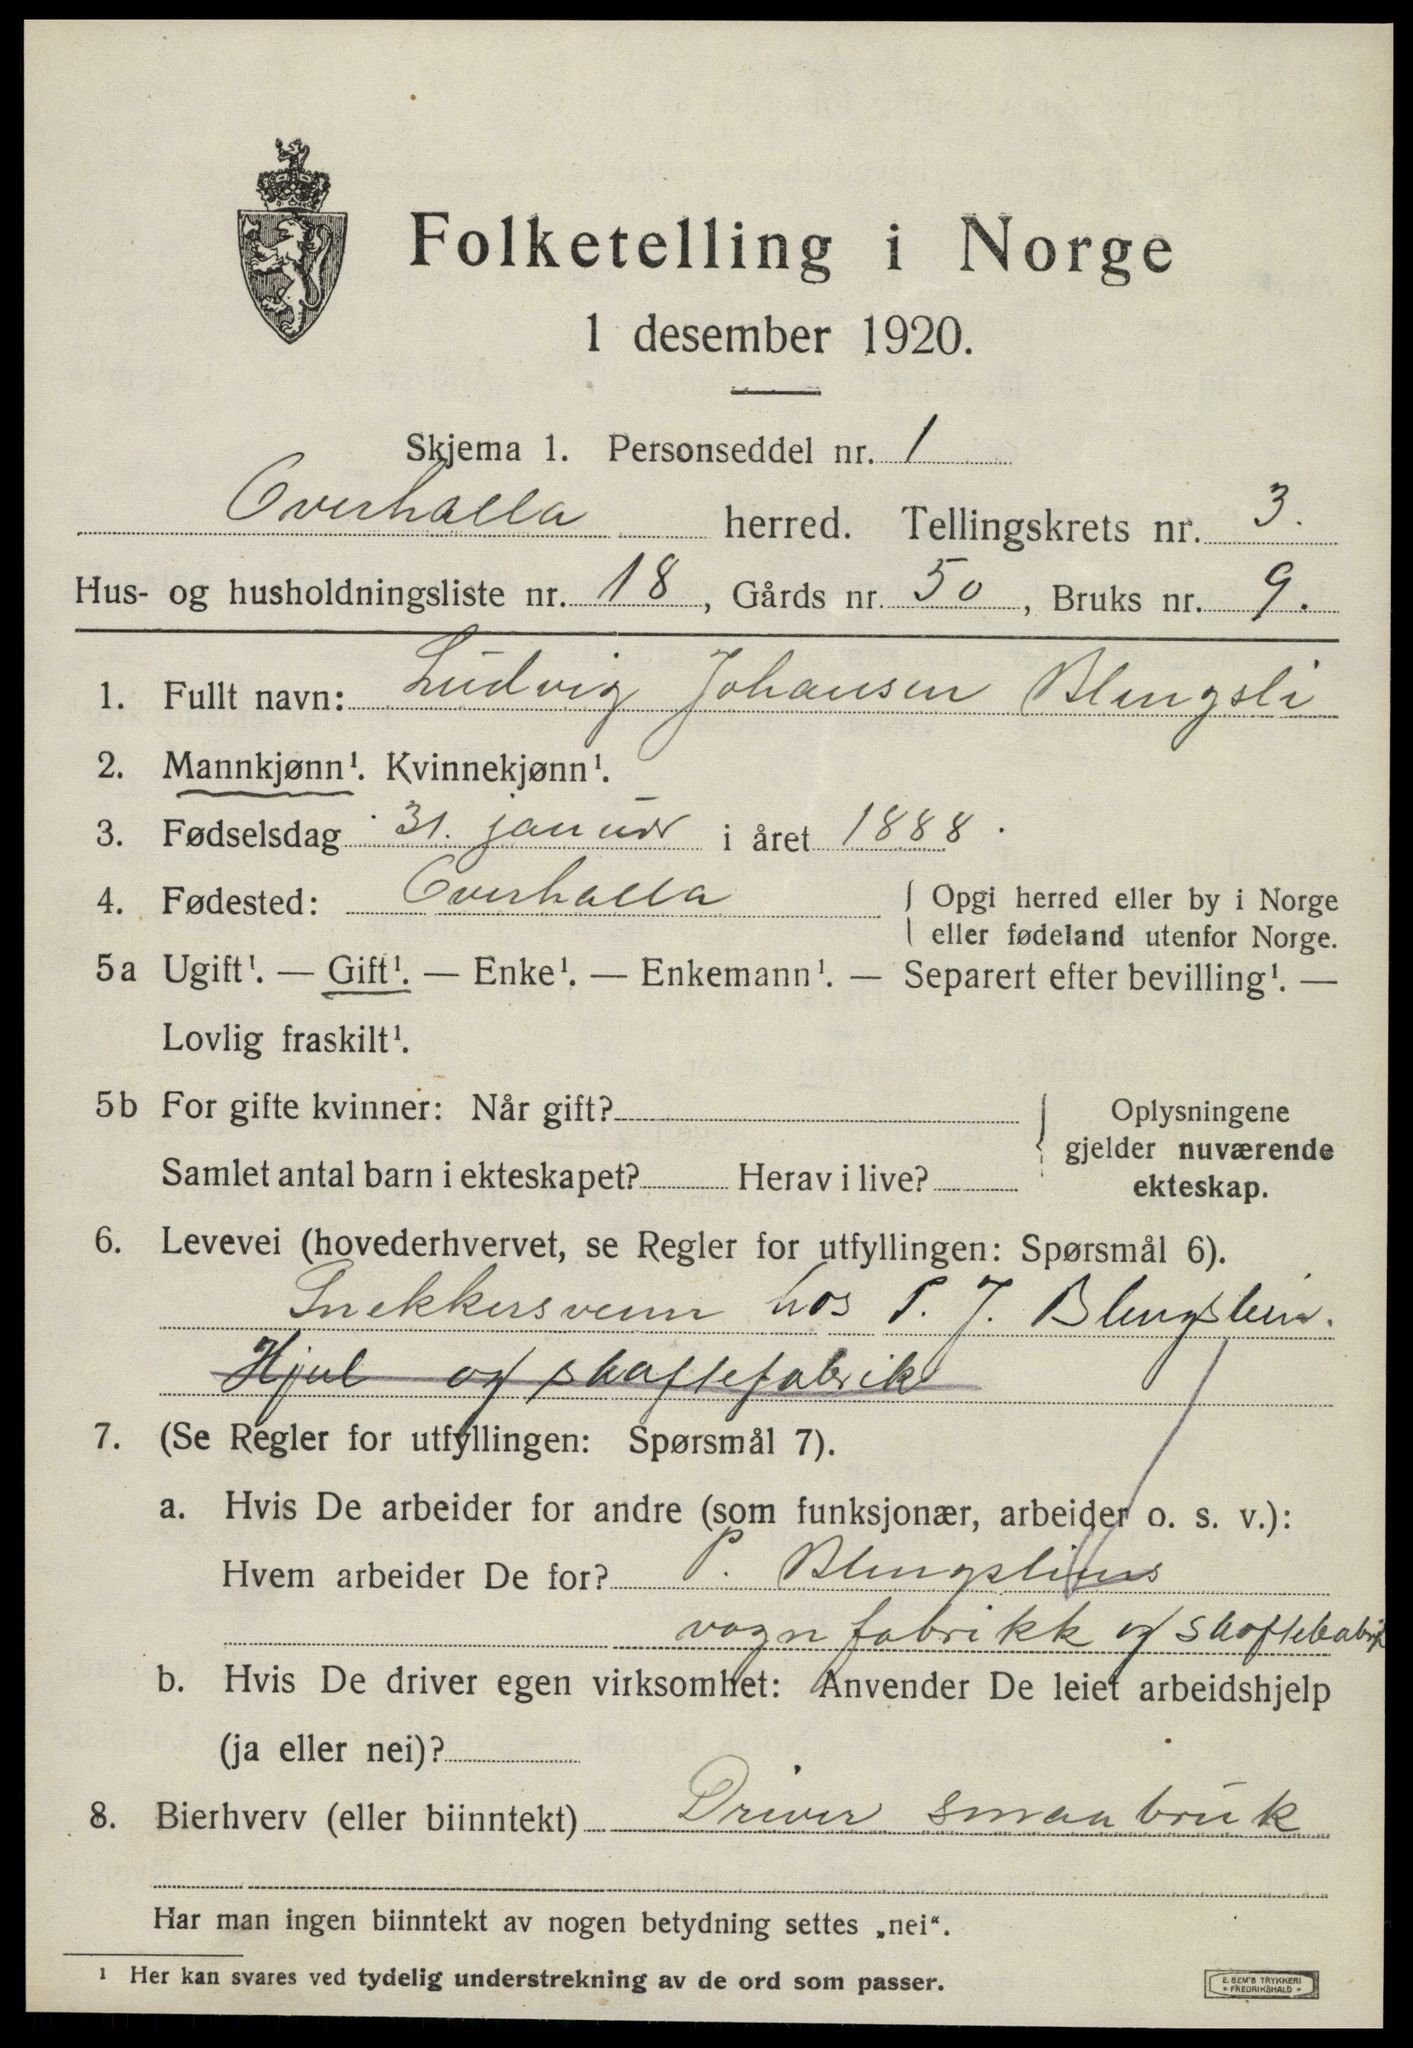 Folketelling i Norge
1 desember 1920.
Skjema 1. Personseddel nr. 1
Overhalla herred. Tellingskrets nr. 3.
Hus- og husholdningsliste nr. 18, Gårds nr. 50, Bruks nr. 9.
1. Fullt navn: Ludvig Johansen Blengsli
2. Mannkjønn¹. Kvinnekjønn¹.
3. Fødselsdag 31. januar i året 1888.
4. Fødested: Overhalla { Opgi herred eller by i Norge
eller fødeland utenfor Norge.
5a Ugift¹. — Gift¹. — Enke¹. — Enkemann¹. — Separert efter bevilling¹. —
Lovlig fraskilt¹.
5b For gifte kvinner: Når gift? { Oplysningene
gjelder nuværende
Samlet antal barn i ekteskapet? Herav i live? ekteskap.
6. Levevei (hovederhvervet, se Regler for utfyllingen: Spørsmål 6).
Snekkersvenn hos P. J.
Hjul og skaftefabrik
7. (Se Regler for utfyllingen: Spørsmål 7).
a. Hvis De arbeider for andre (som funksjonær, arbeider o. s. v.):
Hvem arbeider De for? P.
vognfabrikk og
b. Hvis De driver egen virksomhet: Anvender De leiet arbeidshjelp
(ja eller nei)?
8. Bierhverv (eller biinntekt) Driver smaabruk
Har man ingen biinntekt av nogen betydning settes „nei“.
¹ Her kan svares ved tydelig understrekning av de ord som passer.
E. SEM'S TRYKKERI
FREDRIKSHALD